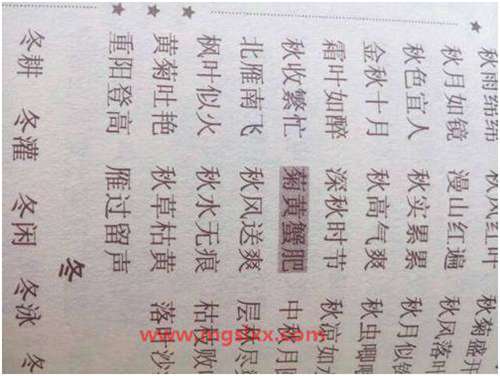 秋雨绵绵 秋风红叶 秋菊盛
秋月如镜 漫山红遍 秋风落叶
秋色宜人 秋实累累 秋月似
金秋十月 秋高气爽 秋虫唧
霜叶如醉 深秋时节 秋凉如
秋收繁忙 菊黄蟹肥 中秋月
北雁南飞 秋风送爽 层林尽
枫叶似火 秋水无痕 枯枝败
黄菊吐艳 秋草枯黄 落叶沙
重阳登高 雁过留声
冬
冬耕 冬灌 冬闲 冬泳 冬